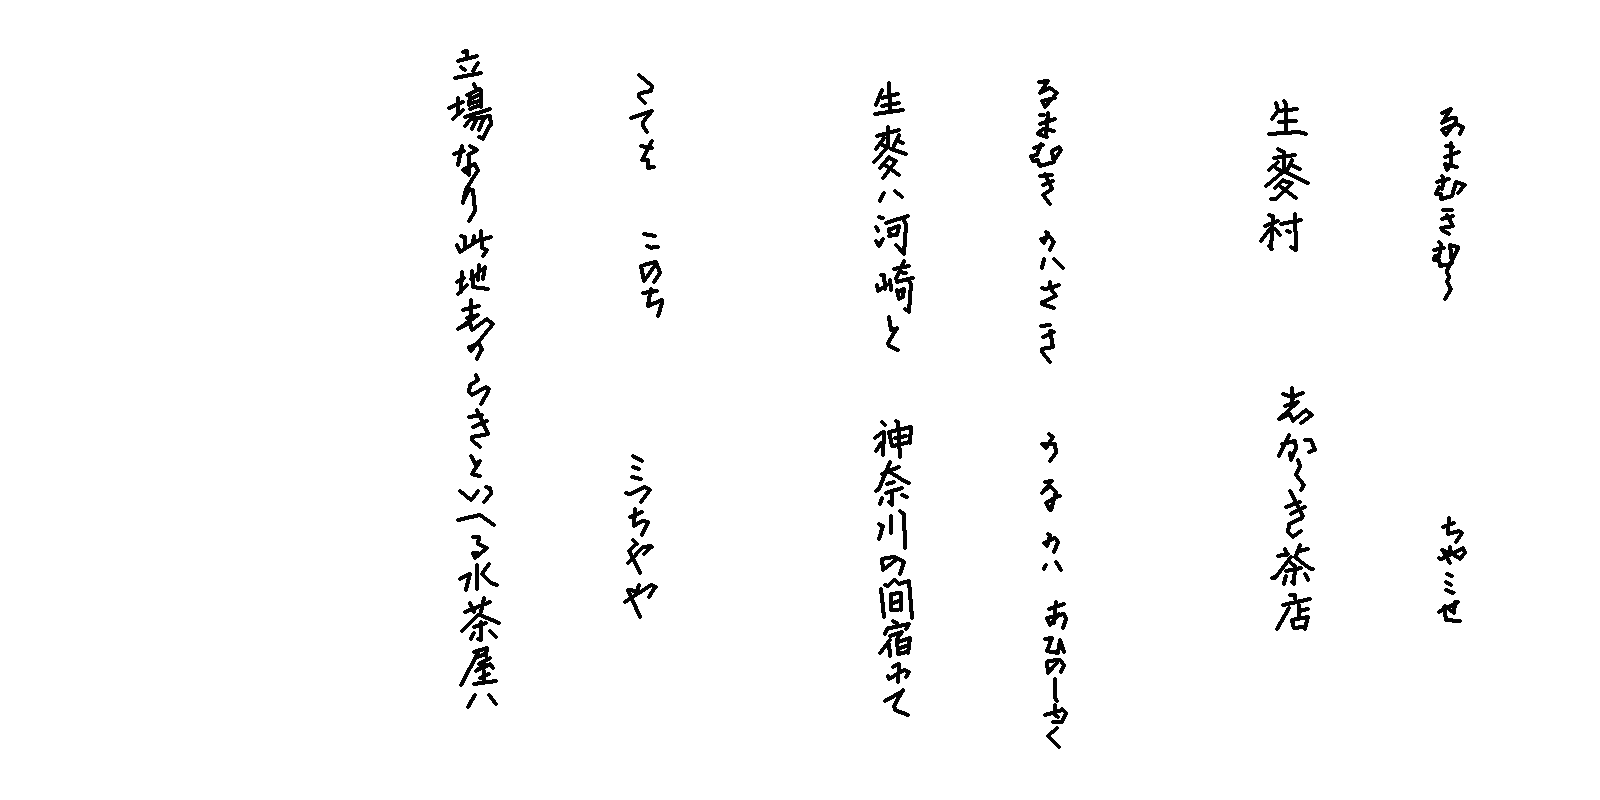 なまむきむら ちやミせ
生麥村 志がらき茶店
なまむき かハさき かなかハ あひのしゆく
生麥ハ河崎と 神奈川の間宿にて
たては このち ミつちやや
立場なり此地志からきといへる水茶屋ハ